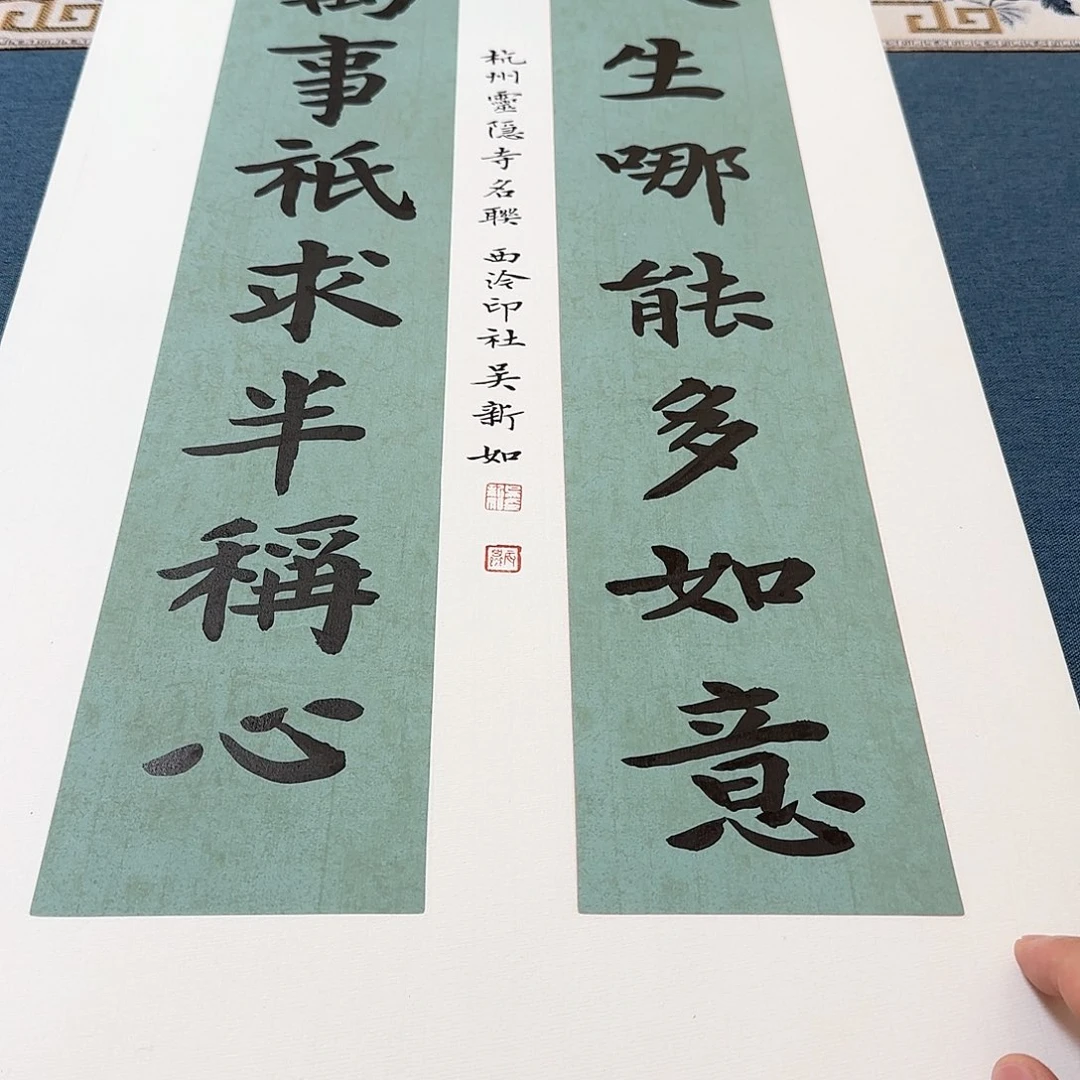 生哪能多如意
杭州靈隱寺名聯 西泠印社吴新如
萬事祇求半稱心